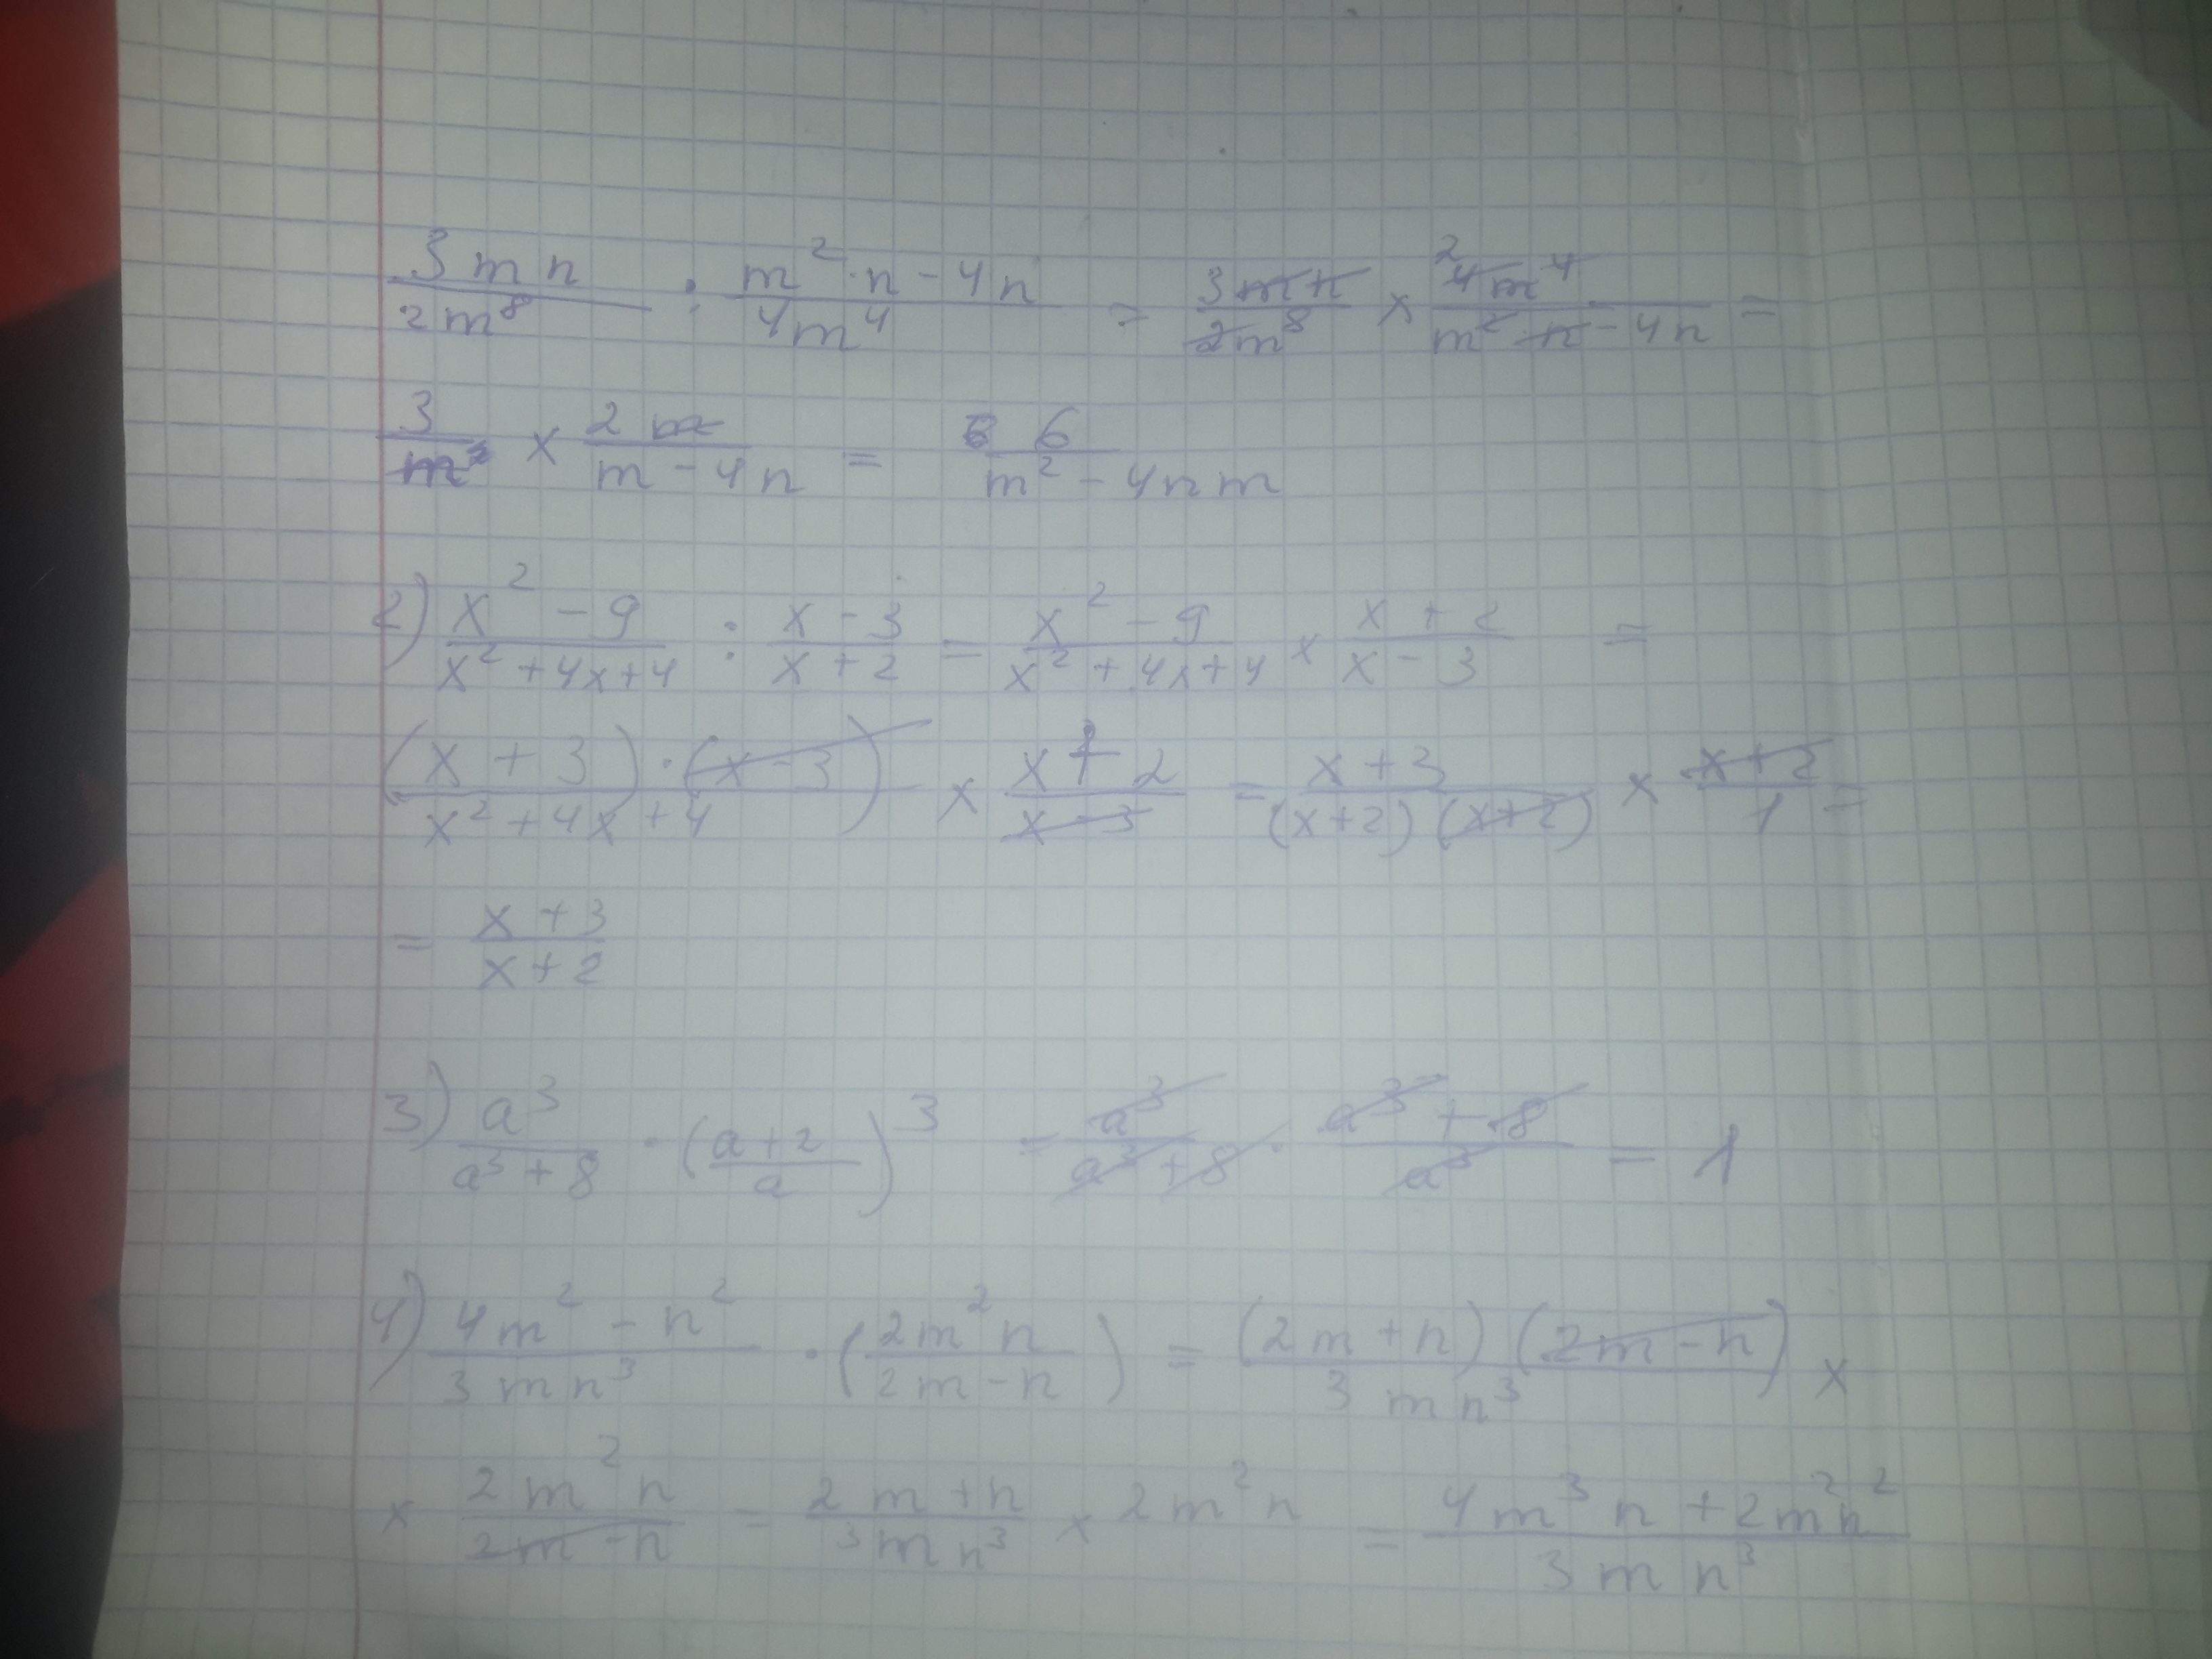 3mn/2m⁸ : (m²·n-4n)/4m⁴ = 3mn/2m⁸ × ²4m⁴/(m²·n-4n) =
3/m² × 2m/(m-4n) = 6/(m²-4nm)
2) (x²-9)/(x²+4x+4) : (x-3)/(x+2) = (x²-9)/(x²+4x+4) × (x+2)/(x-3) =
(x+3)·(x-3)/(x²+4x+4) × (x+2)/(x-3) = (x+3)/(x+2)(x+2) × (x+2)/1 =
= (x+3)/(x+2)
3) a³/(a³+8) · ((a+2)/a)³ = a³/(a³+8) · (a³+8)/a³ = 1
4) (4m²-n²)/3mn³ · (2m²n/(2m-n)) = (2m+n)(2m-n)/3mn³ ×
× 2m²n/(2m-n) = (2m+n)/3mn³ × 2m²n = (4m³n+2m²n²)/3mn³